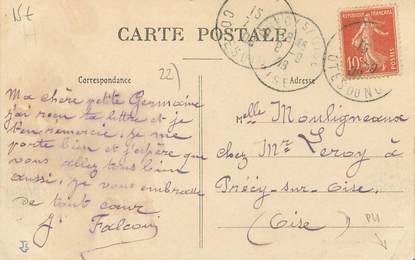 15t
H
CARTE POSTALE
Correspondance
22)
Adresse
10c
POSTES
Ma chère petite Germaine
j'ai reçu ta lettre et je
t'en remercie, je me
porte bien et j'espère que
vous allez tous bien
aussi, je vous embrasse
de tout cœur
J. Falcoui
Melle Mouligneaux
chez Mr Leroy à
Précy-sur-Oise
(Oise)